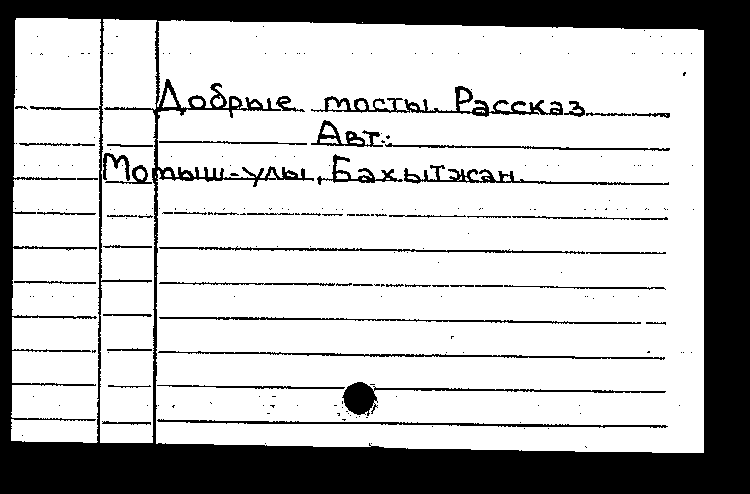 Добрые мосты. Рассказ
Авт.:
Момыш-улы, Бахытжан.